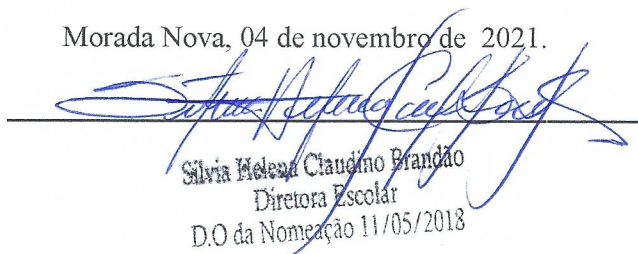 Morada Nova, 04 de novembro de 2021.
Silvia Helena Claudino Brandão
Diretora Escolar
D.O da Nomeação 11/05/2018